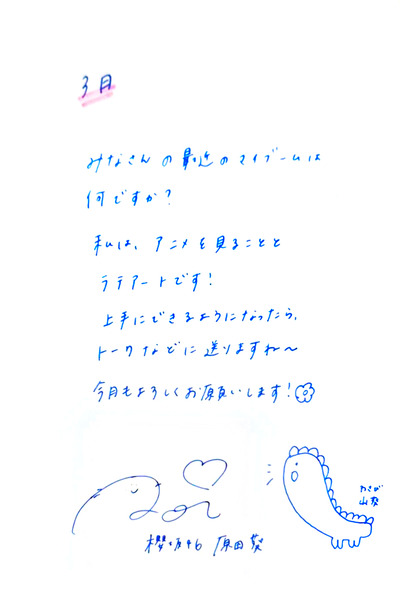 3月
みなさんの最近のマイブームは
何ですか?
私は、アニメを見ることと
ラテアートです!
上手にできるようになったら、
トークなどに送りますね〜
今月もよろしくお願いします!
櫻坂46 原田葵
わさび
山葵